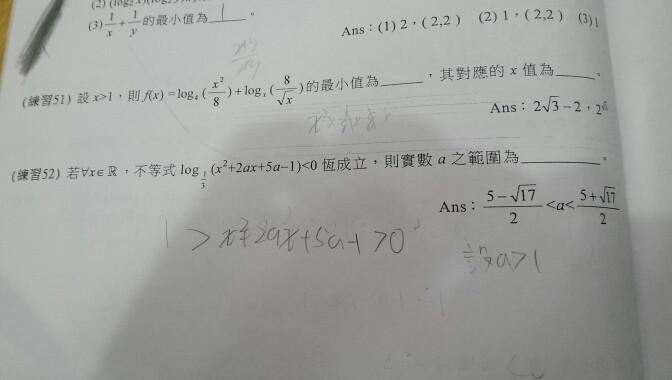 (3) 1/x + 1/y 的最小值為 1 。
Ans：(1) 2，( 2,2 )　(2) 1，( 2,2 )　(3) 1
(練習51) 設 x>1，則 f(x) =log₄ ( x²/8 )+logₓ ( 8/√x )的最小值為______，其對應的 x 值為______。
Ans：2√3−2，2
(練習52) 若∀x∈ℝ，不等式 log_{1/3} (x²+2ax+5a−1)<0 恆成立，則實數 a 之範圍為__________。
Ans： (5−√17)/2 <a< (5+√17)/2
1 > x²+2ax+5a-1 >0
a>1